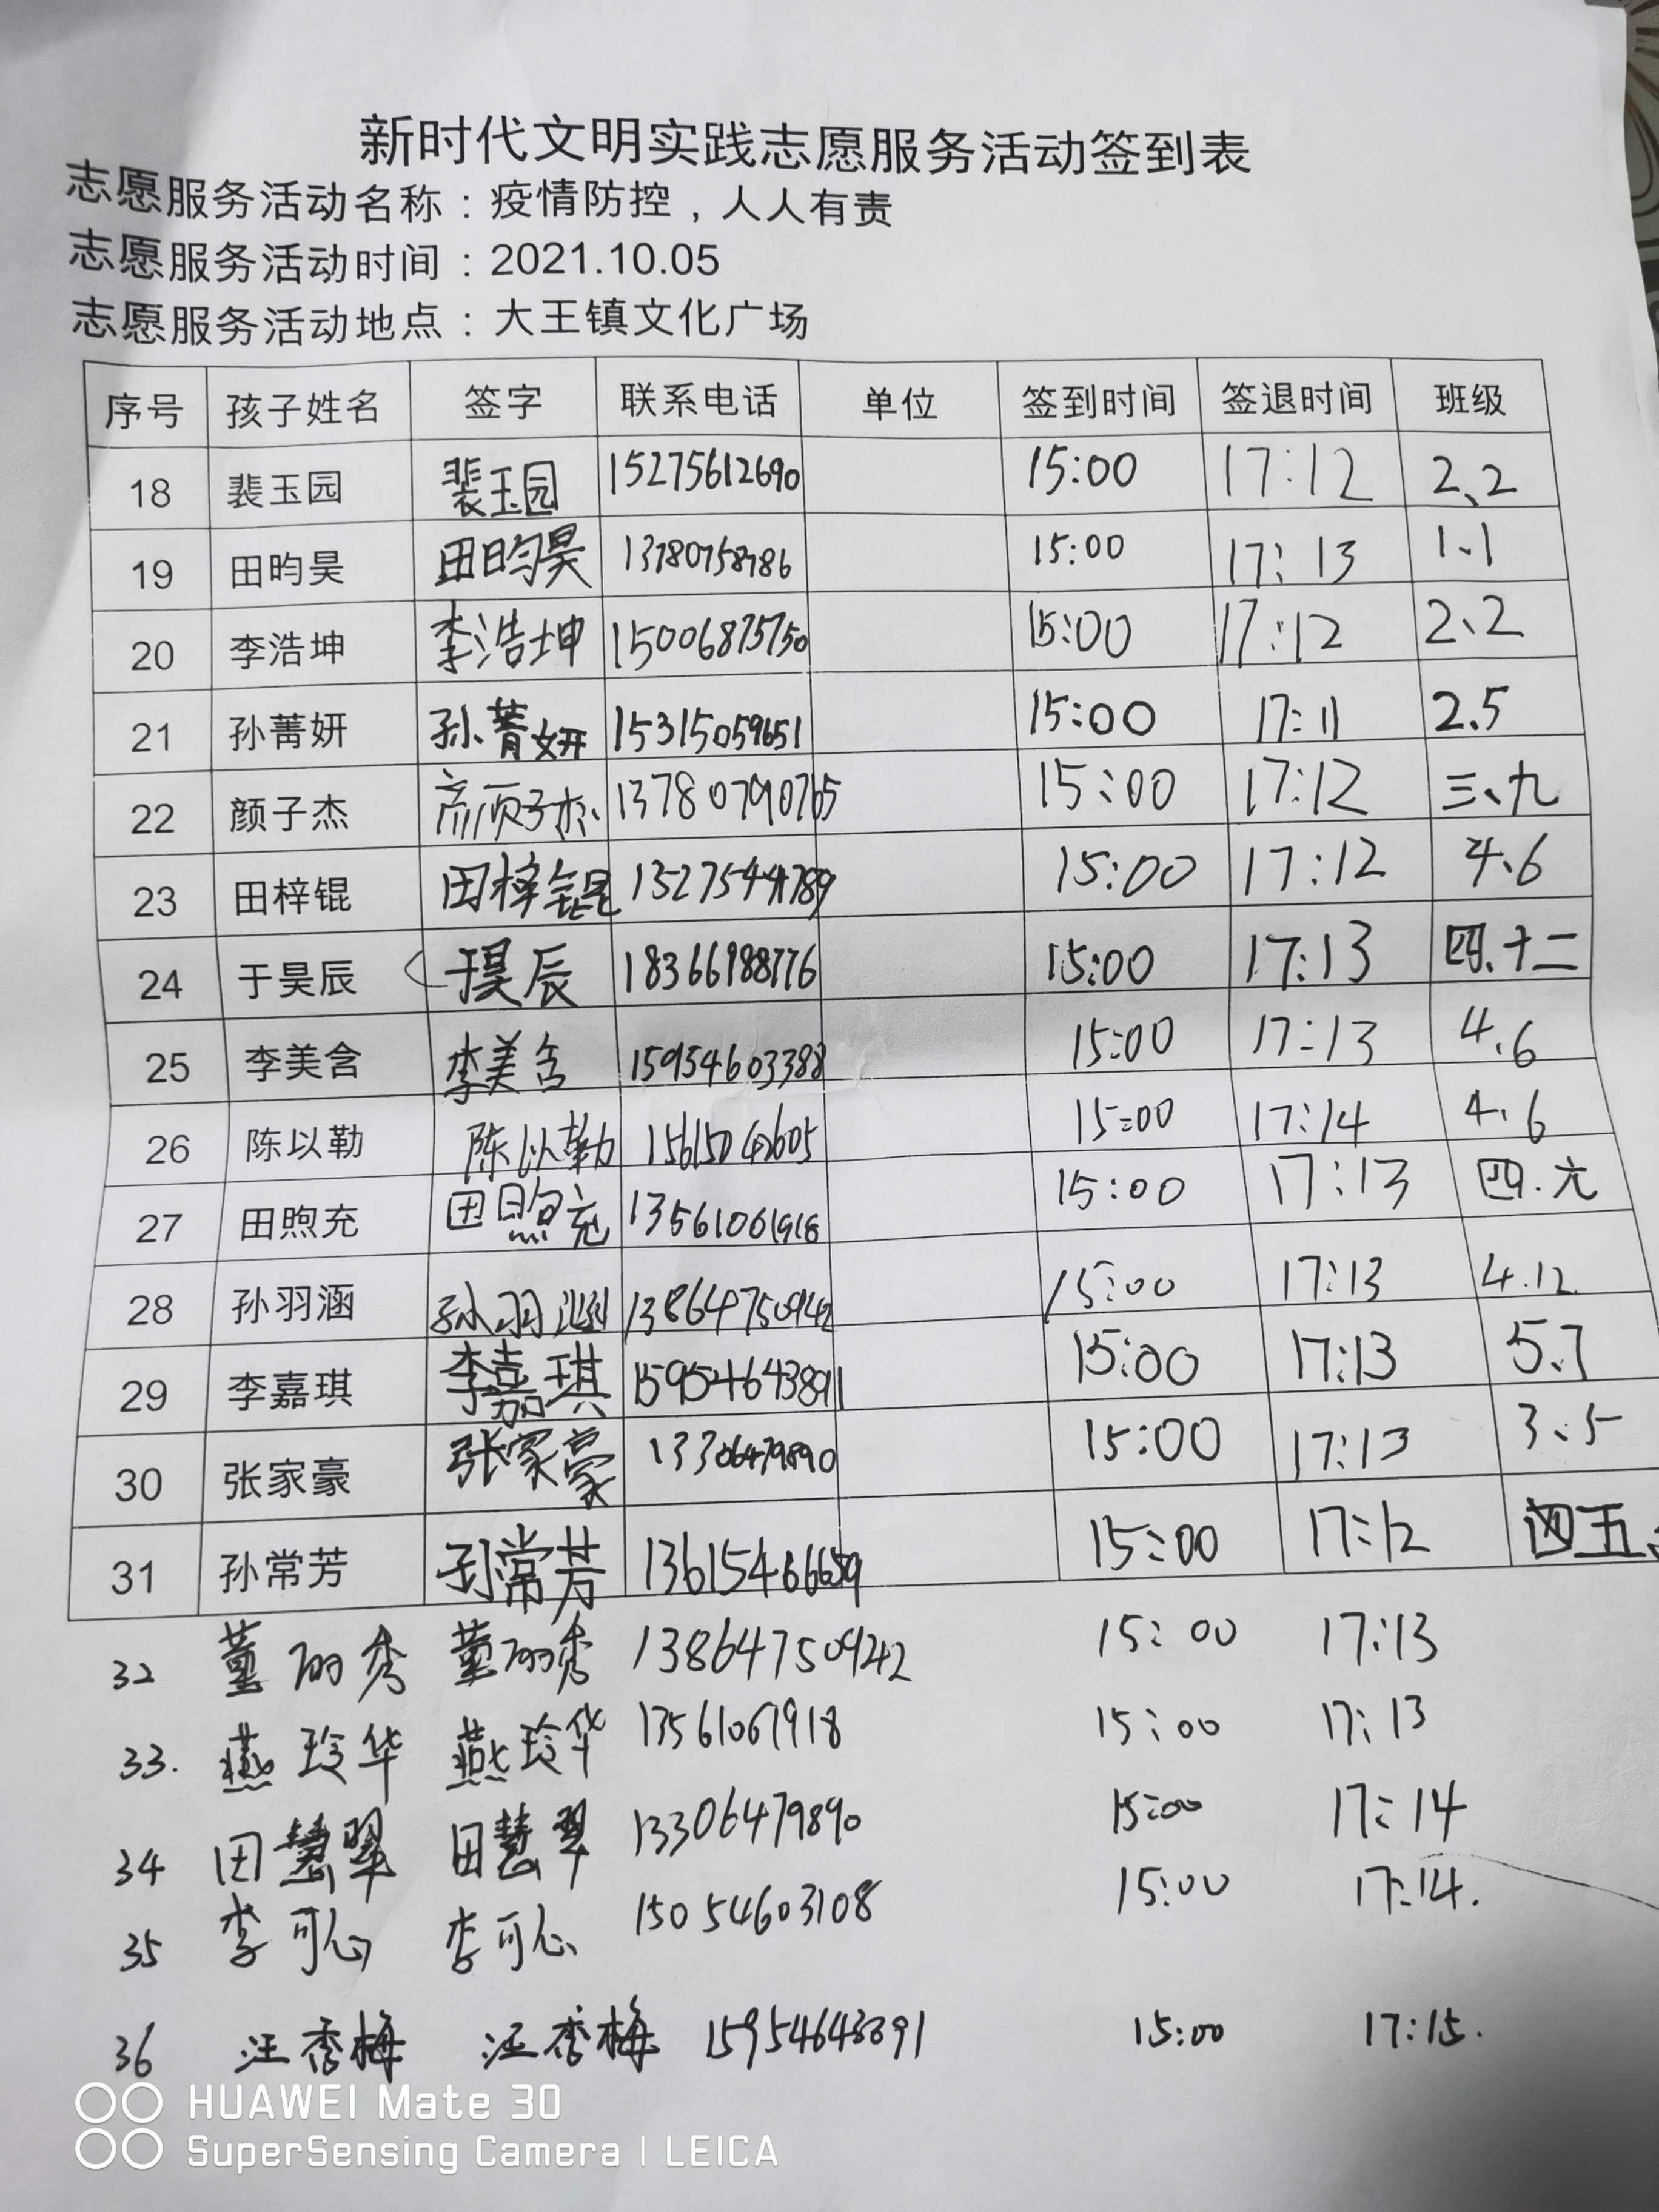 新时代文明实践志愿服务活动签到表
志愿服务活动名称：疫情防控，人人有责
志愿服务活动时间：2021.10.05
志愿服务活动地点：大王镇文化广场
序号 孩子姓名 签字 联系电话 单位 签到时间 签退时间 班级
18 裴玉园 裴玉园 15275612690 15:00 17:12 2、2
19 田昀昊 田昀昊 13780758786 15:00 17:13 1、1
20 李浩坤 李浩坤 15006875750 15:00 17:12 2、2
21 孙菁妍 孙菁妍 15315059651 15:00 17:11 2、5
22 颜子杰 颜子杰 13780790765 15:00 17:12 三、九
23 田梓锟 田梓锟 13275444789 15:00 17:12 4、6
24 于昊辰 于昊辰 18366988776 15:00 17:13 四、十二
25 李美含 李美含 15954603388 15:00 17:13 4、6
26 陈以勒 陈以勒 15:00 17:14 4、6
27 田煦充 田煦充 13561061918 15:00 17:13 四.六
28 孙羽涵 孙羽涵 13864750942 15:00 17:13 4.12
29 李嘉琪 李嘉琪 15:00 17:13 5、7
30 张家豪 张家豪 13306479890 15:00 17:13 3、5
31 孙常芳 孙常芳 15:00 17:12 四五
32 董丽秀 董丽秀 13864750942 15:00 17:13
33. 燕玲华 燕玲华 13561061918 15:00 17:13
34 田慧翠 田慧翠 13306479890 15:00 17:14
35 李可心 李可心 15054603108 15:00 17:14.
36 汪秀梅 汪秀梅 15954643891 15:00 17:15.
HUAWEI Mate 30
SuperSensing Camera | LEICA